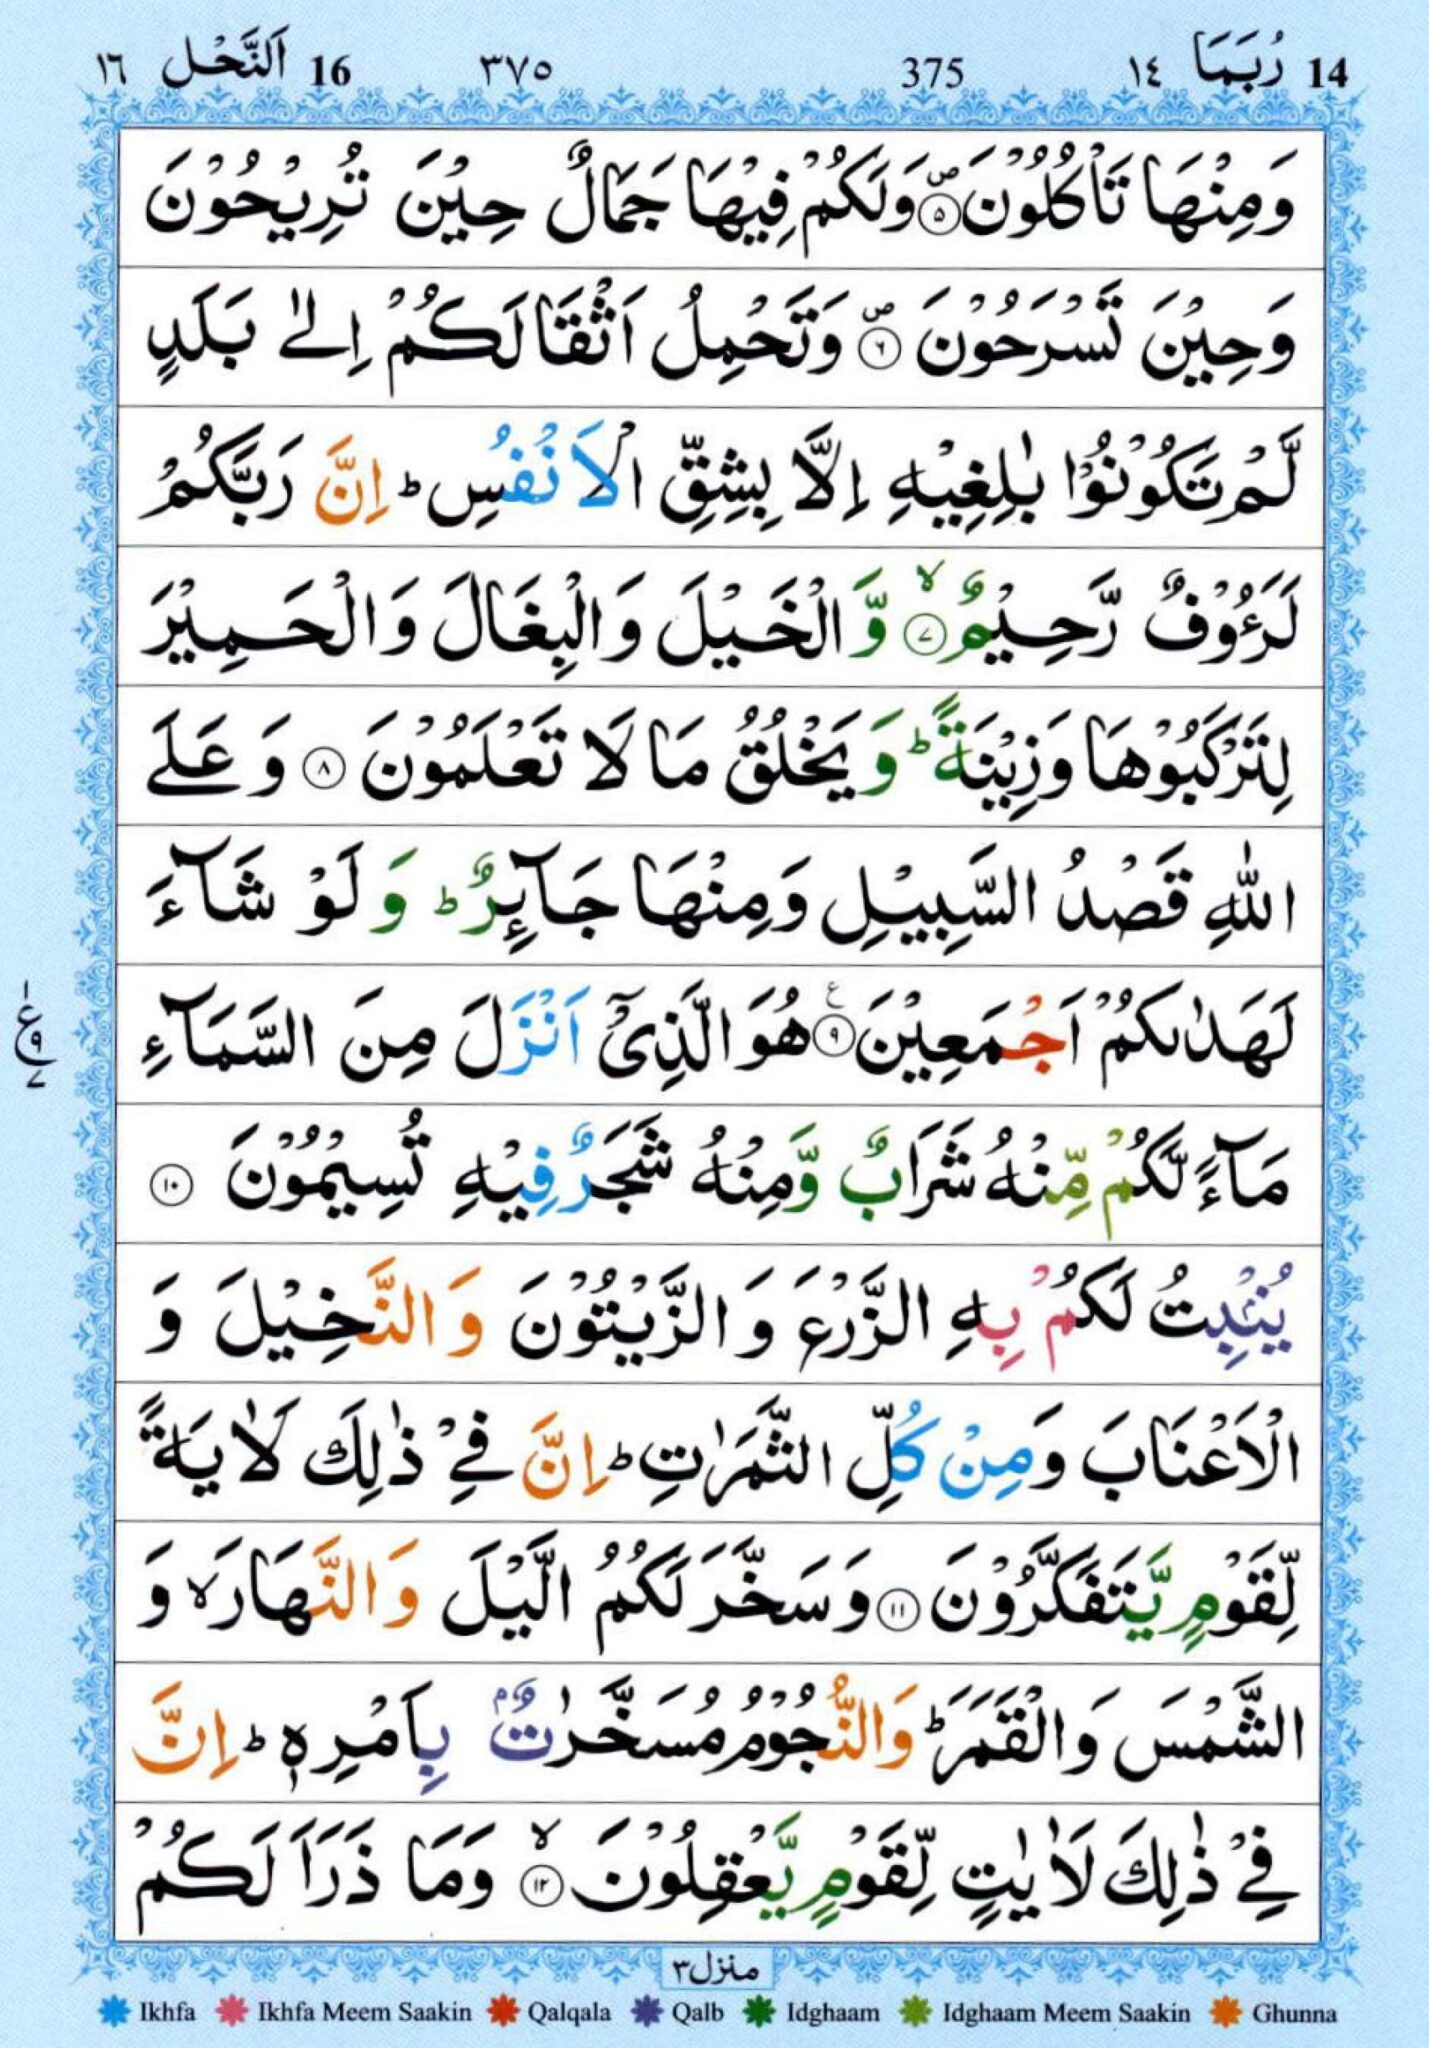 14 رُبَمَا ١٤ 375 ٣٧٥ 16 اَلنَّحْل ١٦
وَمِنْهَا تَاْكُلُوْنَ ۪ ۵ وَلَكُمْ فِيْهَا جَمَالٌ حِيْنَ تُرِيْحُوْنَ
وَحِيْنَ تَسْرَحُوْنَ ۪ ۶ وَتَحْمِلُ اَثْقَالَكُمْ اِلٰى بَلَدٍ
لَّمْ تَكُوْنُوْا بٰلِغِيْهِ اِلَّا بِشِقِّ الْاَنْفُسِ ؕ اِنَّ رَبَّكُمْ
لَرَءُوْفٌ رَّحِيْمٌ ۙ ۷ وَّالْخَيْلَ وَالْبِغَالَ وَالْحَمِيْرَ
لِتَرْكَبُوْهَا وَزِيْنَةً ؕ وَيَخْلُقُ مَا لَا تَعْلَمُوْنَ ۸ وَعَلَى
اللّٰهِ قَصْدُ السَّبِيْلِ وَمِنْهَا جَآئِرٌ ؕ وَلَوْ شَآءَ
لَهَدٰىكُمْ اَجْمَعِيْنَ ع ۹ هُوَ الَّذِىْۤ اَنْزَلَ مِنَ السَّمَآءِ
١ ع ۹ ۷
مَآءً لَّكُمْ مِّنْهُ شَرَابٌ وَّمِنْهُ شَجَرٌ فِيْهِ تُسِيْمُوْنَ ۱۰
يُنْۢبِتُ لَكُمْ بِهِ الزَّرْعَ وَالزَّيْتُوْنَ وَالنَّخِيْلَ وَ
الْاَعْنَابَ وَمِنْ كُلِّ الثَّمَرٰتِ ؕ اِنَّ فِىْ ذٰلِكَ لَاٰيَةً
لِّقَوْمٍ يَّتَفَكَّرُوْنَ ۱۱ وَسَخَّرَ لَكُمُ الَّيْلَ وَالنَّهَارَ ۙ وَ
الشَّمْسَ وَالْقَمَرَ ؕ وَالنُّجُوْمُ مُسَخَّرٰتٌۢ بِاَمْرِهٖ ؕ اِنَّ
فِىْ ذٰلِكَ لَاٰيٰتٍ لِّقَوْمٍ يَّعْقِلُوْنَ ۙ ۱۲ وَمَا ذَرَاَ لَكُمْ
منزل ٣
Ikhfa Ikhfa Meem Saakin Qalqala Qalb Idghaam Idghaam Meem Saakin Ghunna